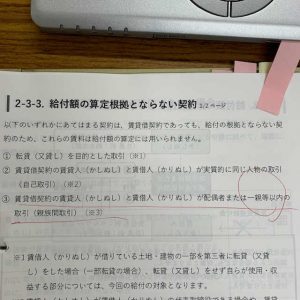 2-3-3. 給付額の算定根拠とならない契約 1/2ページ
以下のいずれかにあてはまる契約は、賃貸借契約であっても、給付の根拠とならない契
約のため、これらの賃料は給付額の算定には用いられません。
① 転貸(又貸し)を目的とした取引(※1)
② 賃貸借契約の賃貸人(かしぬし)と賃借人(かりぬし)が実質的に同じ人物の取引
(自己取引)(※2)
③ 賃貸借契約の賃貸人(かしぬし)と賃借人(かりぬし)が配偶者または一親等以内の
取引(親族間取引)(※3)
※1 賃借人(かりぬし)が借りている土地・建物の一部を第三者に転貸(又貸
し)をした場合(一部転貸の場合)、転貸(又貸し)をせず自らが使用・収
益する部分については、今回の給付の対象となります。